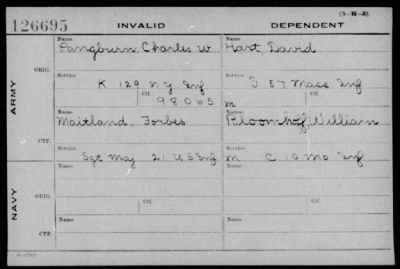 (3-H-3)
126695 INVALID DEPENDENT
Name Name
Pangburn, Charles W Hart, David
ORIG.
Service Service
K 129 NY Inf S 57 Mass Inf
Ctf. 98065 m
ARMY
Name Name
Maitland Forbes William
CTF.
Service Service
Sgt Maj 21 US Inf m C 10 Mo Inf
Name Name
ORIG.
Service Ctf. Service
NAVY
Name Name
CTF.
Service Service